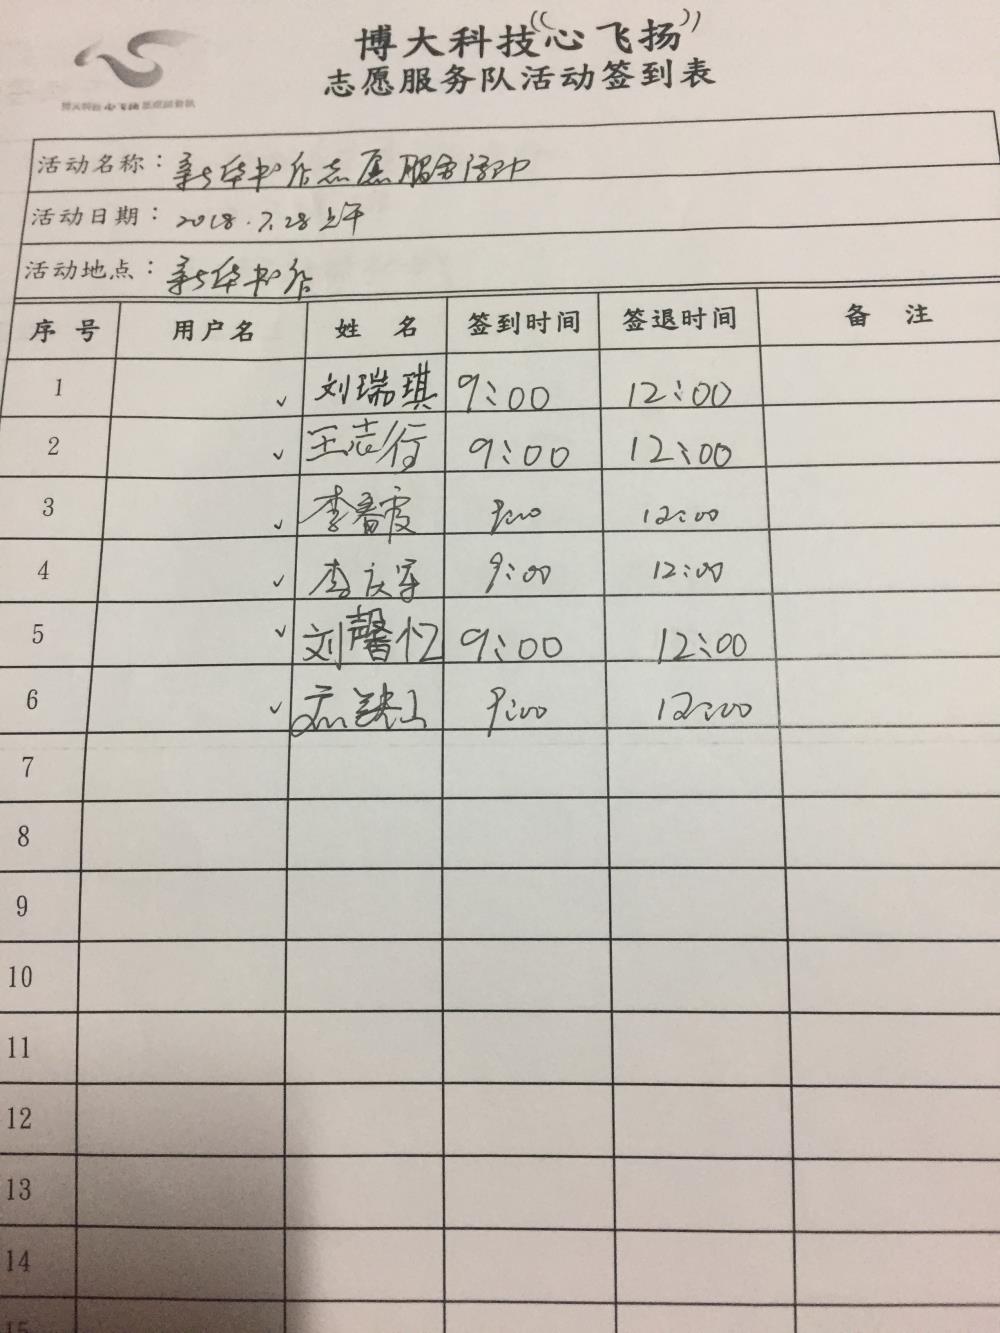 博大科技“心飞扬”
志愿服务队活动签到表
活动名称：新华书店志愿服务活动
活动日期：2018.7.28上午
活动地点：新华书店
序号 用户名 姓名 签到时间 签退时间 备注
1 ✓ 刘瑞琪 9:00 12:00
2 ✓ 王志行 9:00 12:00
3 ✓ 李春霞 9:00 12:00
4 ✓ 李庆军 9:00 12:00
5 ✓ 刘馨忆 9:00 12:00
6 ✓ 9:00 12:00
7
8
9
10
11
12
13
14
15